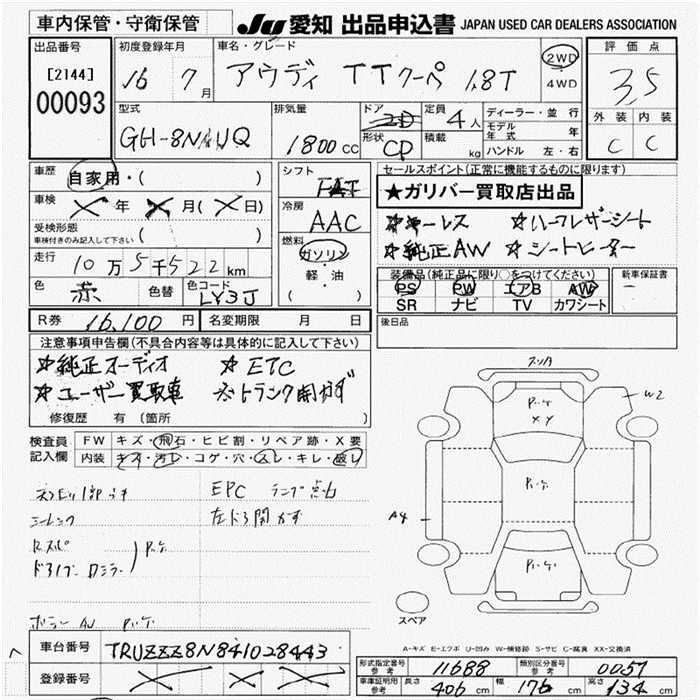 車内保管・守衛保管
JU 愛知 出品申込書 JAPAN USED CAR DEALERS ASSOCIATION
出品番号
[2144]
00093
初度登録年月
16 7月
車名・グレード
アウディ TTクーペ 1.8T
2WD
4WD
評価点
3.5
外装 内装
C C
型式
GH-8NAUQ
排気量
1800cc
ドア
2D
形状
CP
定員
4人
積載
kg
ディーラー・並行
モデル年式 年
ハンドル 左・右
車歴
自家用・( )
車検
年 月( 日)
受検形態
車検付きのみ記入して下さい ( )
走行
10万5千522km
色
赤
色替
色コード
LY3J
シフト
FAT
冷房
AAC
燃料
ガソリン
軽・油
( )
セールスポイント(正常に機能するものに限ります)
★ガリバー買取店出品
☆キーレス ☆ハーフレザーシート
☆純正AW ☆シートヒーター
装備品(純正品に限り○をつけてください)
PS PW エアB AW
SR ナビ TV カワシート
新車保証書
－
R券 16,100円
名変期限 月 日
後日品
注意事項申告欄(不具合内容等は具体的に記入して下さい)
☆純正オーディオ ☆ETC
☆ユーザー買取車 ※トランク開かず
修復歴 有(箇所 )
検査員記入欄
FW キズ・飛石・ヒビ割・リペア跡・X要
内装 キズ・汚レ・コゲ・穴・スレ・キレ・破レ
EPC ランプ点灯
左ドア開かず
ドライバーロミラー
スリキズ
W2
A4
スペア
A-キズ E-エクボ U-凹み W-補修跡 S-サビ C-腐食 XX-交換済
車台番号 TRUZZZ8N841028443
登録番号
形式指定番号 参考 11688
類別区分番号 参考 0057
車庫証明用 参考
長さ 406cm
幅 176cm
高さ 134cm